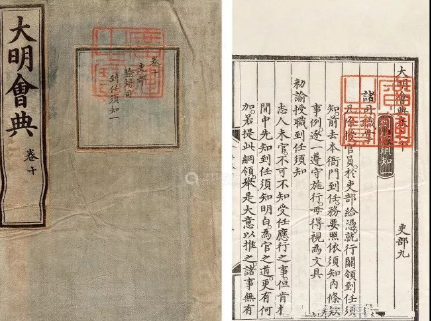 大明會典
卷十
卷十
吏部
到任須知一
大明會典卷
吏部九
諸司職掌
員於吏部給憑就行關領到任須
知前去本衙門到任務要照依須知內條欵
事例逐一遵守施行毋得視為文具
勑諭授職到任須知
志人未官不可不知受任應行之事但肯於
間中先知到任須知明白為官之道更有何
加若提此綱領舉是大意以推之諸事無有